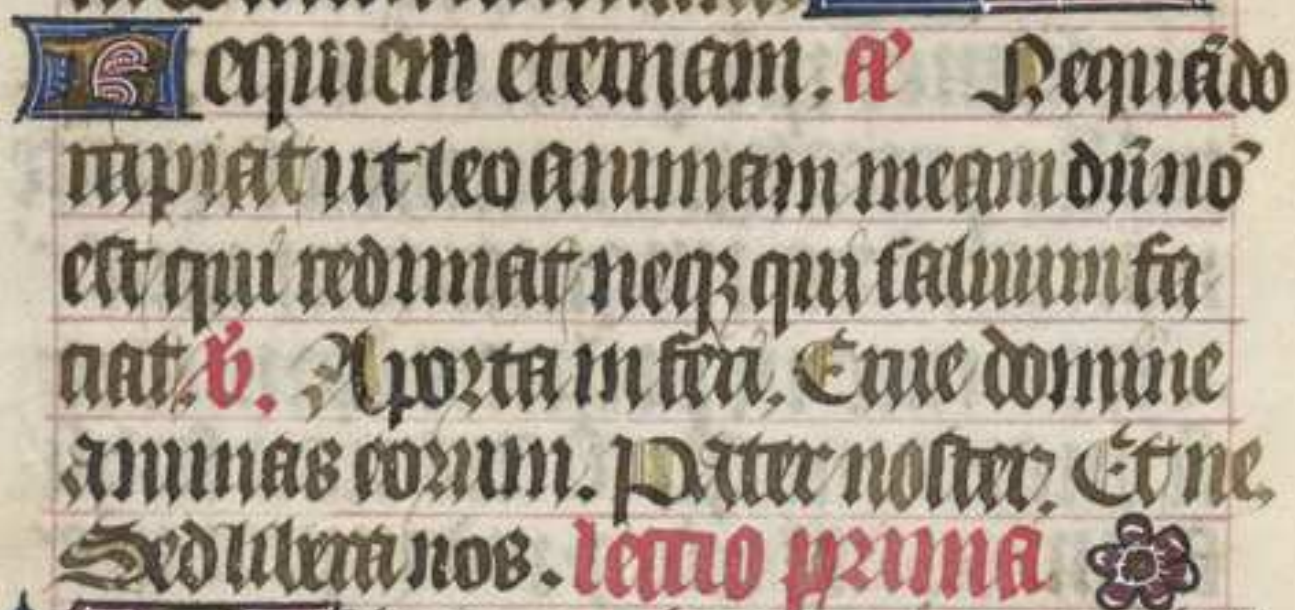 Requiem eternam. añ Nequãdo
rapiat ut leo animam meam dũ nõ
est qui redimat neqꝫ qui saluum fa
ciat. ꝟ. A porta inferi. Erue domine
animas eorum. Pater noster. Et ne.
Sed libera nos. lectio prima